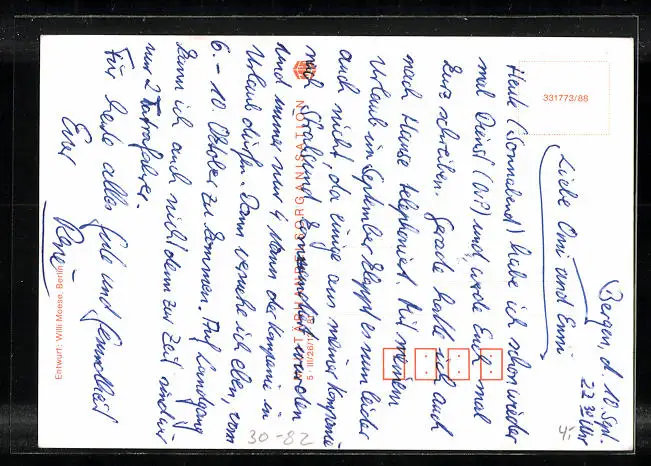 Bergen, d. 10. Sept.
22 30 Uhr
Liebe Omi und Emi
Heute (Sonnabend) habe ich schon wieder
mal Dienst und werde Euch mal
kurz schreiben. Gerade hatte ich auch
nach Hause telephoniert. Mit meinem
Urlaub im September klappt es nun leider
auch nicht, da einige aus meiner Kompanie
nach Stralsund wurden
und immer nur 4 Mann der Kompanie in
Urlaub dürfen. Dann versuche ich eben, vom
6. - 10. Oktober zu kommen. Auf Landgang
kann ich auch nicht denn zur Zeit sind wir
nur 2 Tatrafahrer.
Für heute alles Gute und Gesundheit
Euer René
331773/88
MILITÄRHANDELSORGANISATION
Entwurf: Willi Moese, Berlin
30-82
4,-